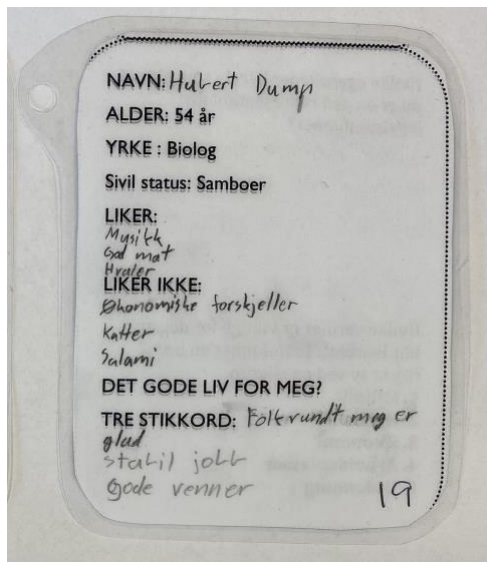 NAVN: Hubert Dump
ALDER: 54 år
YRKE : Biolog
Sivil status: Samboer
LIKER:
Mysikk
God mat
Hvaler
LIKER IKKE:
Økonomiske forskjeller
Katter
Salami
DET GODE LIV FOR MEG?
TRE STIKKORD: Folk rundt meg er
glad
stabil jobb
Gode venner
19